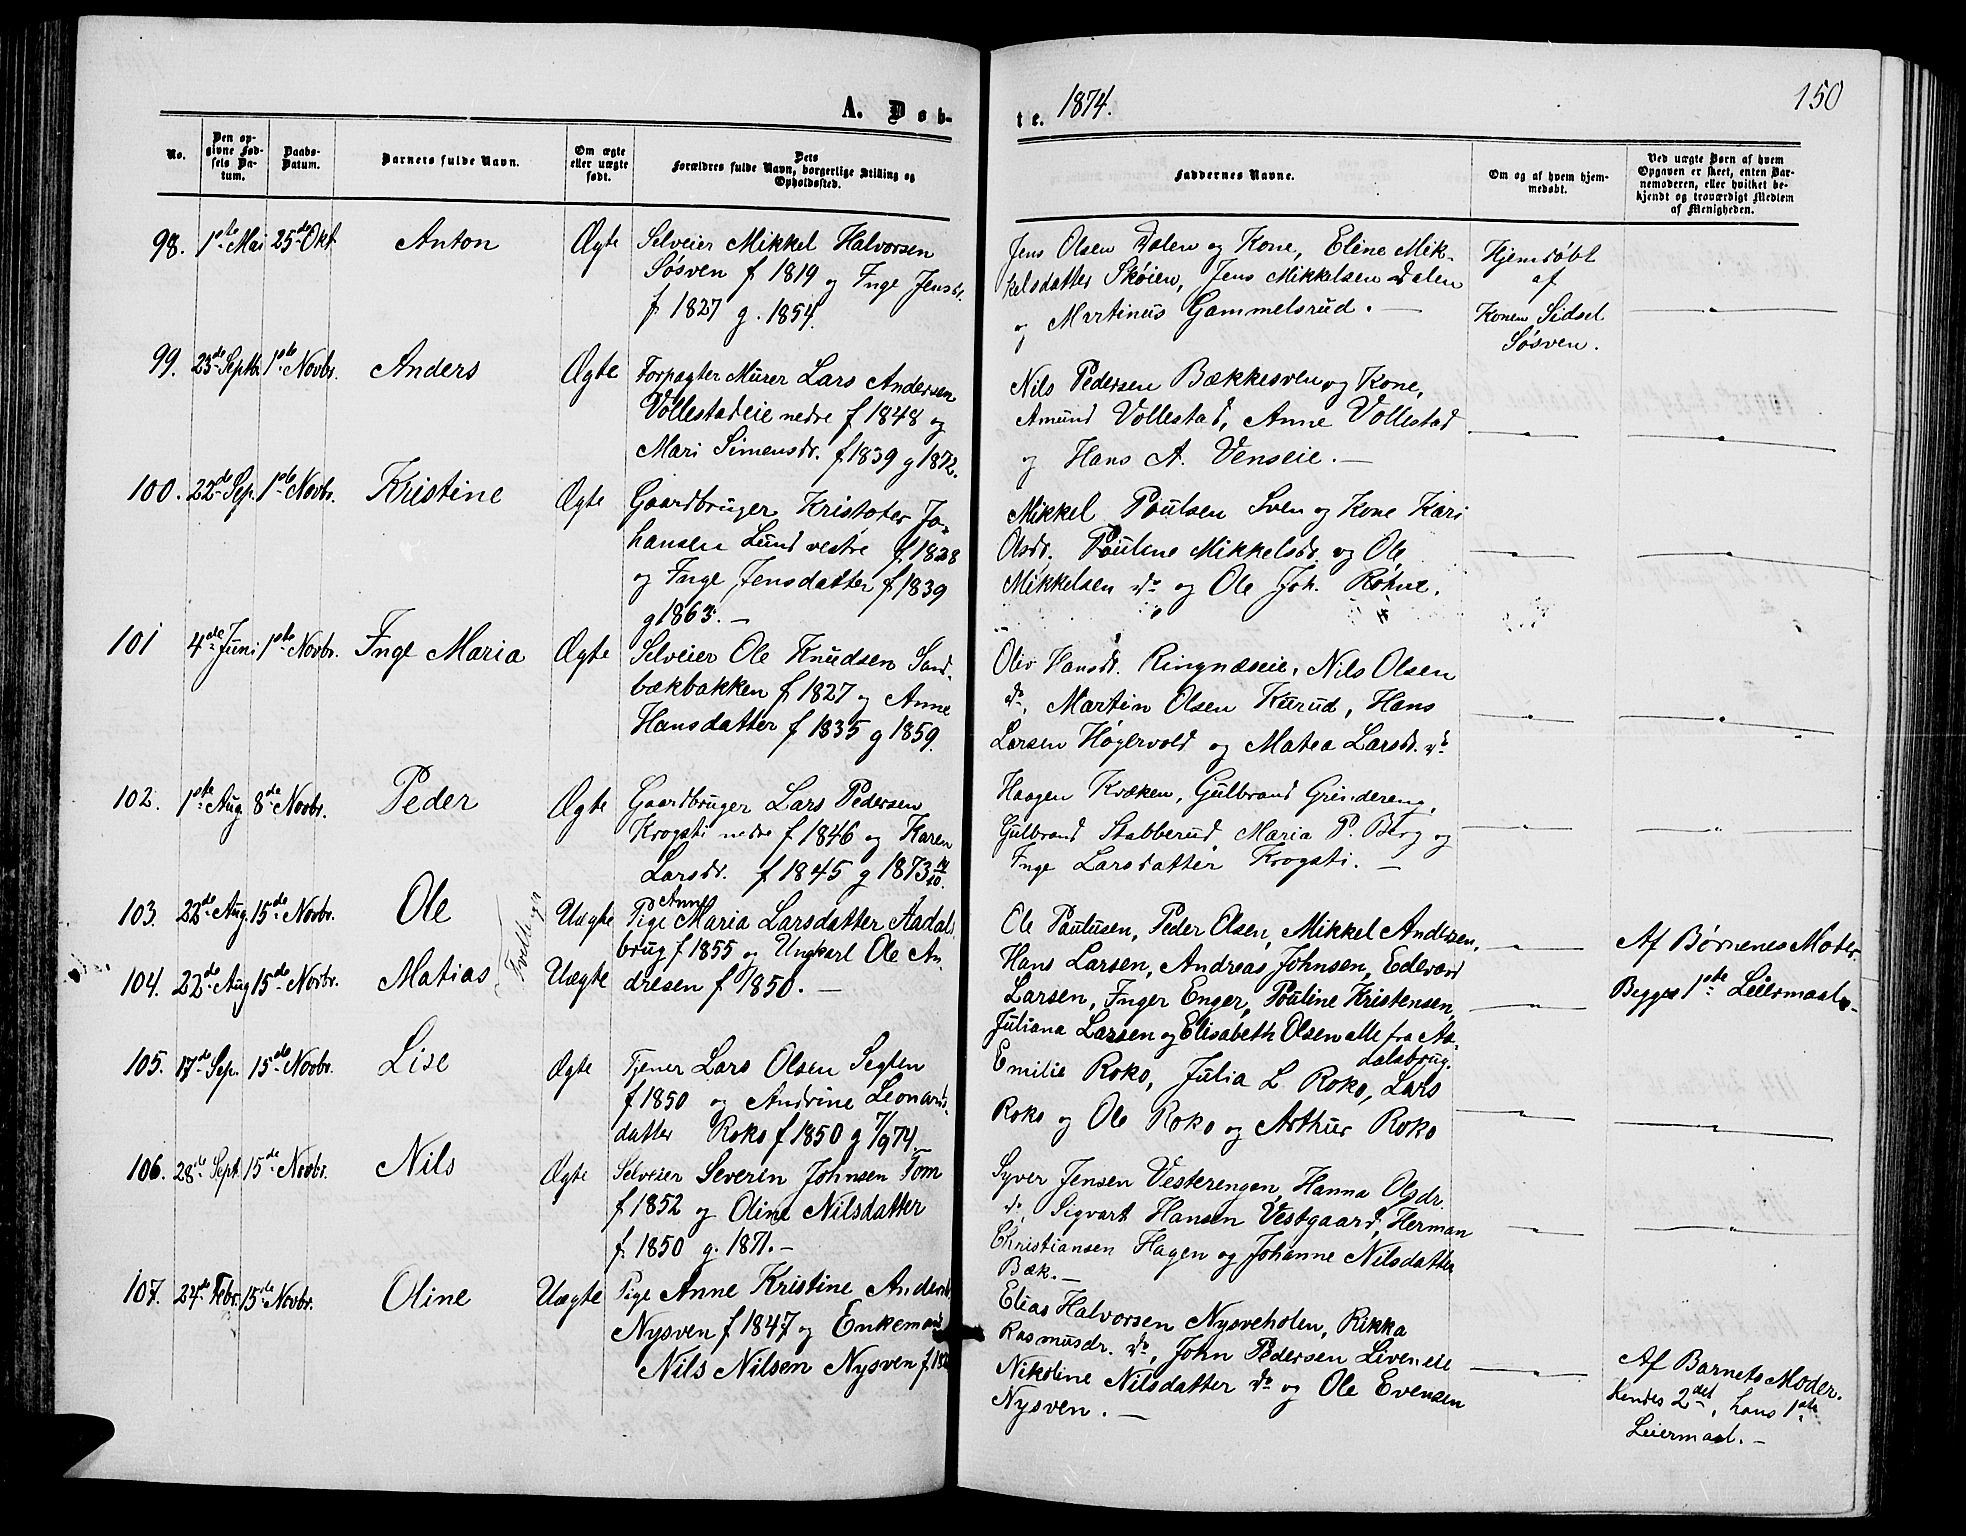 A. Døb-
te. 1874.
150
No.
Den op-
givne Fød-
sels Da-
tum.
Daabs-
Datum.
Barnets fulde Navn.
Om ægte
eller uægte
født.
Dets
Forældres fulde Navn, borgerlige Stilling og
Opholdssted.
Faddernes Navne.
Om og af hvem hjem-
medøbt.
Ved uægte Børn af hvem
Opgaven er skeet, enten Bar-
nemoderen, eller hvilket be-
kjendt og troværdigt Medlem
af Menigheden.
98. 1ste Mai 25de Okt. Anton Ægte
Selveier Mikkel Halvorsen
Søsven f 1819 og Inge Jensdr.
f 1827 g. 1854.
Jens Olsen Dalen og Kone, Eline Mik-
kelsdatter Skøien, Jens Mikkelsen Dalen
og Martinus Gammelsrud. —
Hjemdøbt
af
Konen Sidsel
Søsven.
99. 23de Septbr. 1ste Novbr. Anders Ægte
Forpagter Murer Lars Andersen
Vollestadeie nedre f 1848 og
Mari Simensdr. f 1839 g 1872.
Nils Pedersen Bækkesven og Kone,
Amund Vollestad, Anne Vollestad
og Hans A. Venseie. —
100. 22de Sep. 1ste Novbr. Kristine Ægte
Gaardbruger Kristofer Jo-
hansen Lund vestre f 1828
og Inge Jensdatter f 1839
g 1863. —
Mikkel Poulsen Sven og Kone Kari
Olsdr. Pouline Mikkelsdr. og Ole
Mikkelsen do og Ole Joh. Røhne.
101 4de Juni 1ste Novbr. Inge Maria Ægte
Selveier Ole Knudsen Sand-
bækbakken f 1827 og Anne
Hansdatter f 1835 g 1859.
Oliv Hansdr. Ringnæseie, Nils Olsen
do, Martin Olsen Kurud, Hans
Larsen Høgervold og Matea Larsdr. do
102. 1ste Aug. 8de Novbr. Peder Ægte
Gaardbruger Lars Pedersen
Krogsti nedre f 1846 og Karen
Larsdr. f 1845 g 1873 14/10.
Haagen Kræken, Gulbrand Grindereng,
Gulbrand Stabberud, Maria P. Berg og
Inge Larsdatter Krogsti. —
103. 22de Aug. 15de Novbr. Ole Uægte
Tvillinger
104. 22de Aug 15de Novbr. Matias Uægte
Pige Anne Maria Larsdatter Aadals-
brug f 1855 og Ungkarl Ole An-
dresen f 1850. —
Ole Paulusen, Peder Olsen, Mikkel Andersen,
Hans Larsen, Andreas Johnsen, Edevard
Larsen, Inger Enger, Pouline Kristensen,
Juliana Larsen og Elisabeth Olsen alle fra Aa-
dalsbrug.
Af Børnenes Moder.
Begges 1ste Leiermaal. —
105. 17de Sep. 15de Novbr. Lise Ægte
Tjener Lars Olsen Seglen
f 1850 og Andrine Leonards-
datter Roko f 1850 g 7/9 74. —
Emilie Roko, Julia L Roko, Lars
Roko og Ole Roko og Arthur Roko
106. 28de Sept. 15de Novbr. Nils Ægte
Selveier Severin Johnsen Tom
f 1852 og Oline Nilsdatter
f. 1850 g. 1871. —
Syver Jensen Vesterengen, Hanna Olsdr.
do, Sigvart Hansen Vestgaard, Herman
Christiansen Hagen og Johanne Nilsdatter
Bæk. —
107. 24de Febr. 15de Novbr. Oline Uægte
Pige Anne Kristine Andersdr.
Nysven f 1847 og Enkemand
Nils Nilsen Nysven f.
Elias Halvorsen Nysveholen, Rikka
Rasmusdr. do, John Pedersen Liveneie
Nikoline Nilsdatter do og Ole Evensen
Nysven. —
Af Barnets Moder.
Hendes 2det, hans 1ste
Leiermaal. —